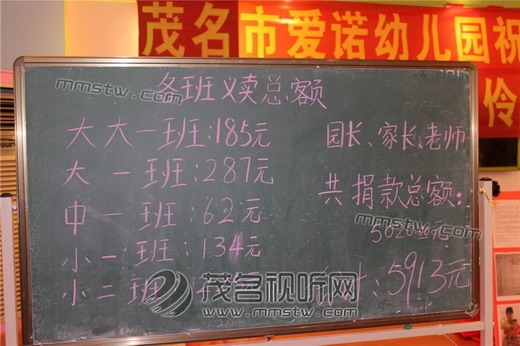 茂名市爱诺幼儿园祝
伶
各班义卖总额
大大一班:185元
大一班:287元
中一班:62元
小一班:134元
小二班
园长、家长、老师
共捐款总额:
元
:5913元
mmstw.com
mmstw.com
mmstw.com
茂名视听网
www.mmstw.com